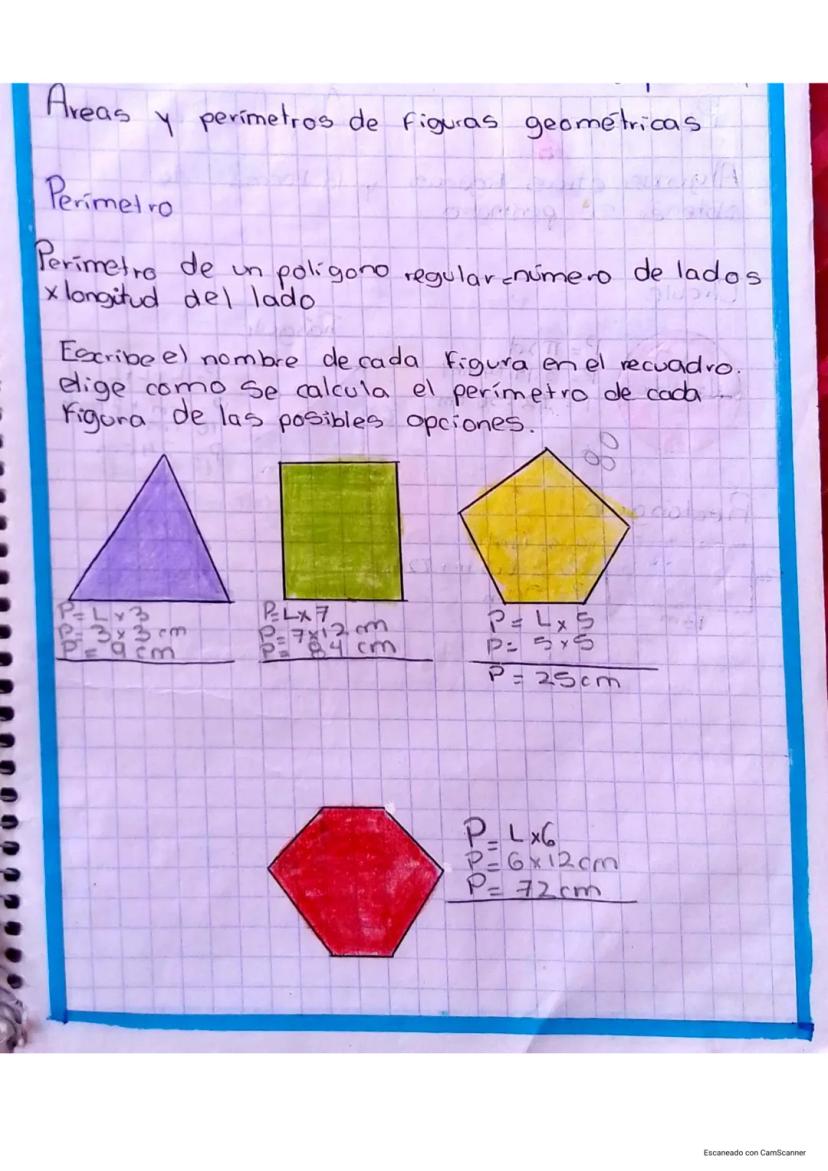 Areas y perímetros de figuras geométricas
Perímetro
Perímetro de un polígono regular=número de lados
x longitud del lado
Escribe el nombre de cada figura en el recuadro.
elige como se calcula el perímetro de cada
figura de las posibles opciones.
P= L x 3
P= 3 x 3 cm
P= 9 cm
P=Lx7
P= 7x12 cm
P= 84 cm
P= L x 5
P= 5x5
P= 25cm
P= Lx6
P= 6x12cm
P= 72cm
Escaneado con CamScanner